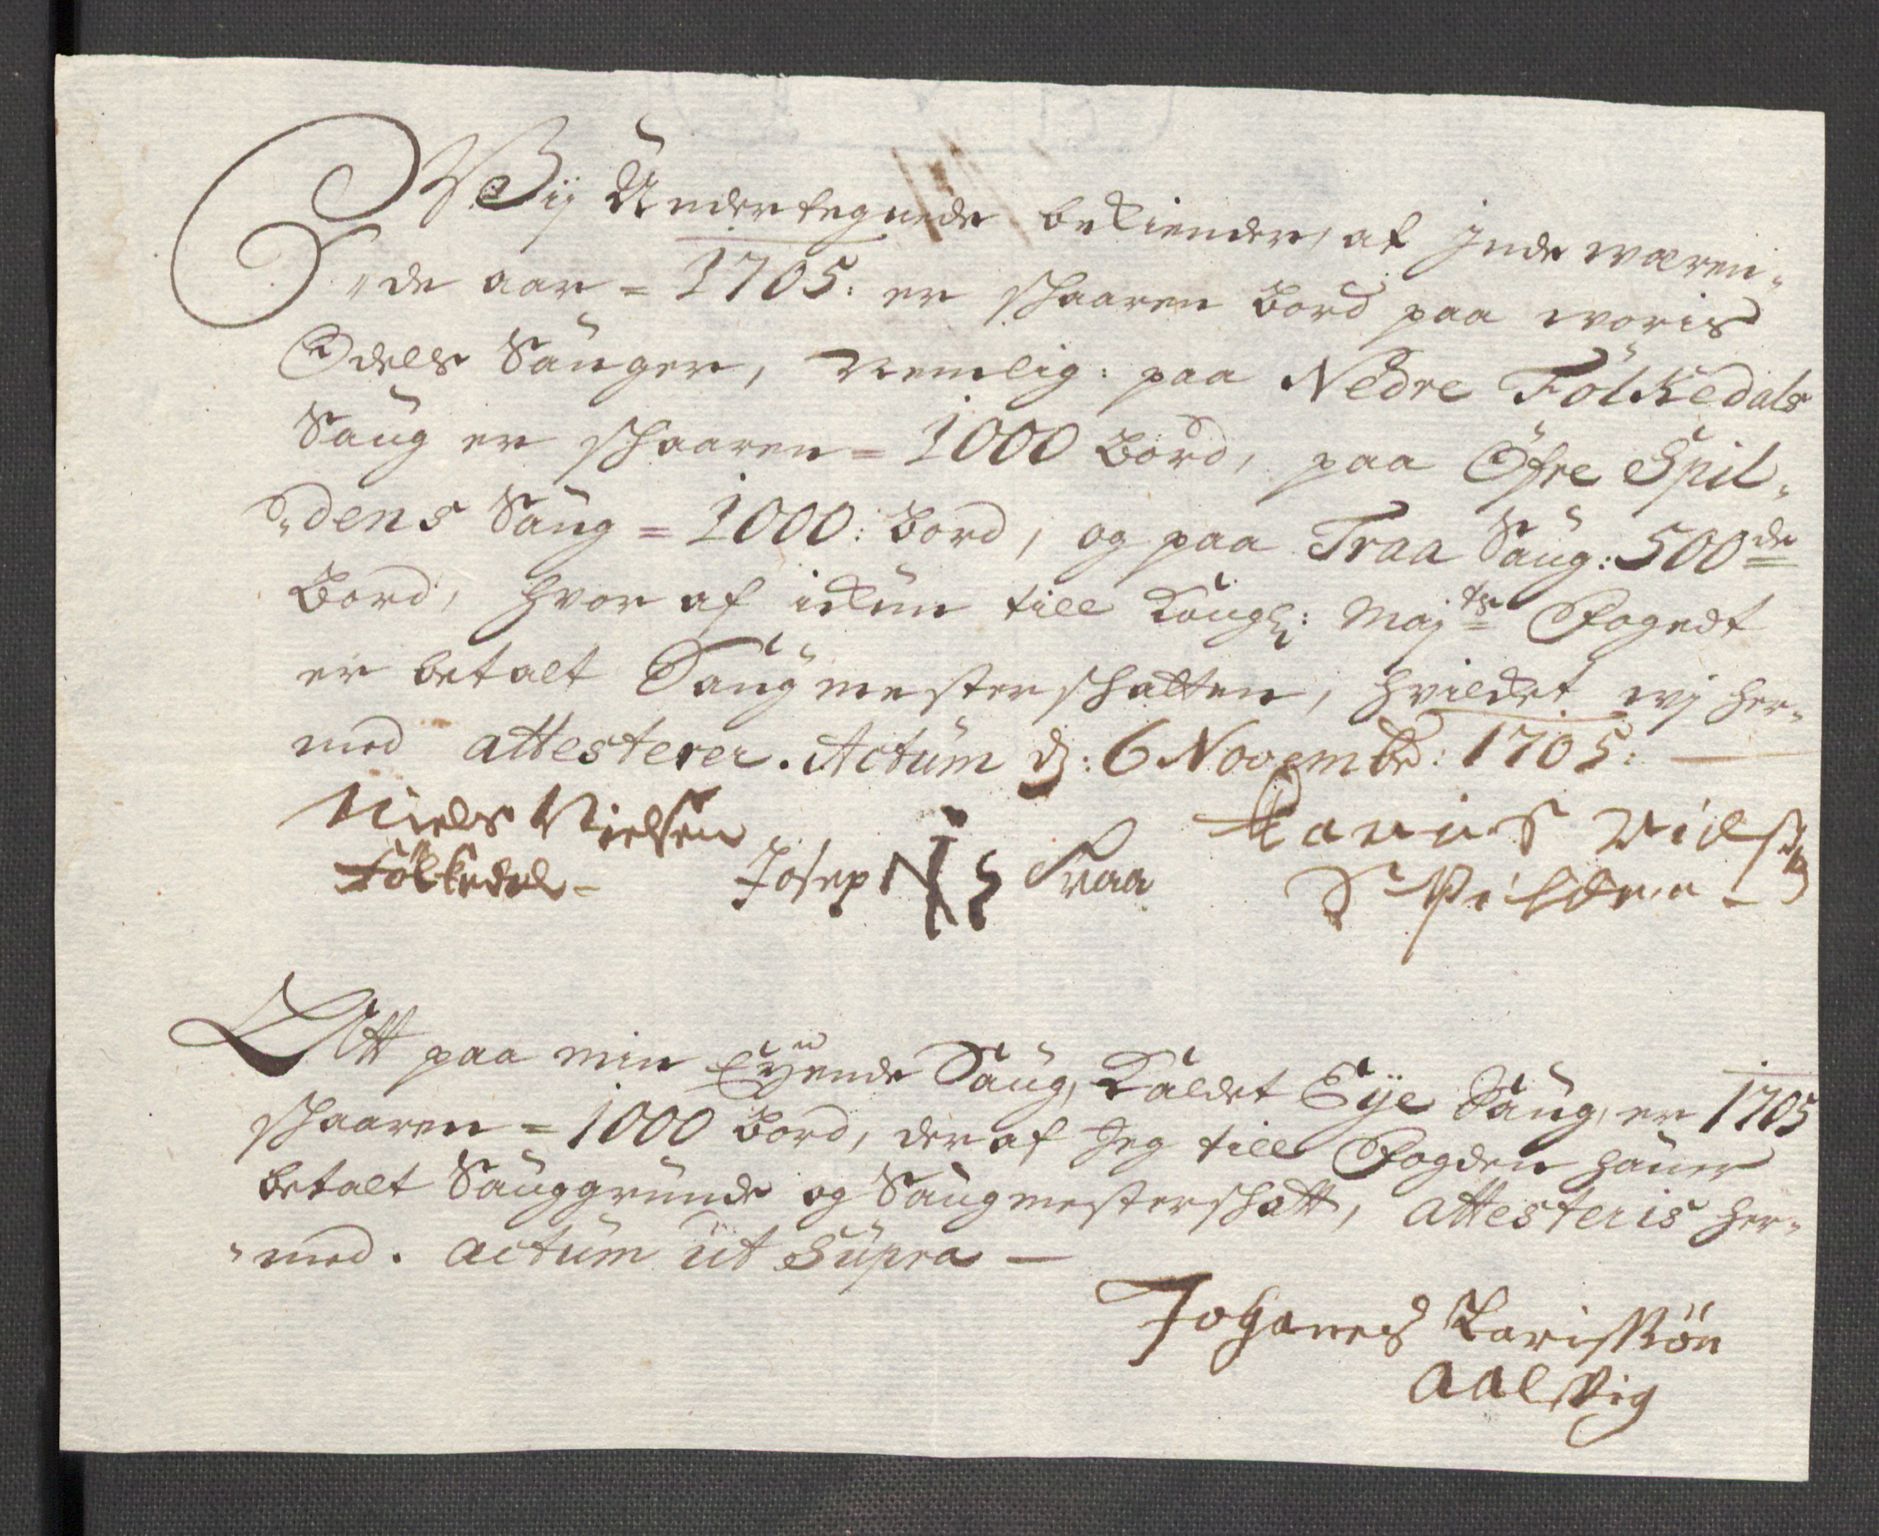 Wij Undertegnede bekiender, at jnde wæren-
de aar = 1705: er schaaren bord paa woris
Odels Sauger, Nemlig: paa Nedre Folkedals
Saug er schaaren = 1000 bord, paa Øfre Spil-
dens Saug = 1000: bord, og paa Traa Saug: 500de
Bord, hvor af ickun till Kongl: Majts Fogedt
er betalt Saugmesterschatten, hvilcket wj her-
med attesterer. Actum d: 6 Novembr: 1705:
Niels Nielsen
Folkedal
Josep Traa
Nielsen
Spilden
Att paa min Eyende Saug, Kaldet Eye Saug, er 1705
schaaren = 1000 bord, der af Jeg till Fogden hauer
betalt Sauggrunde og Saugmesterschatt, attesteris her-
med. actum ut supra
Johanes Larissøn
Aalvig